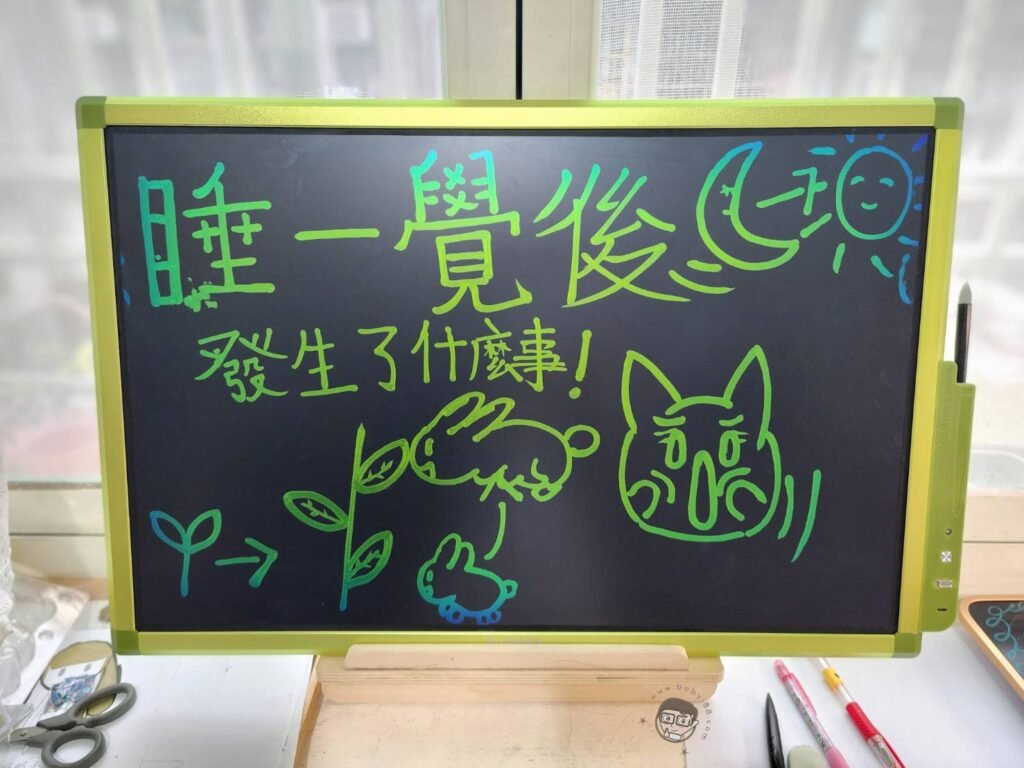 睡一覺後
發生了什麼事!
www.baby88.com